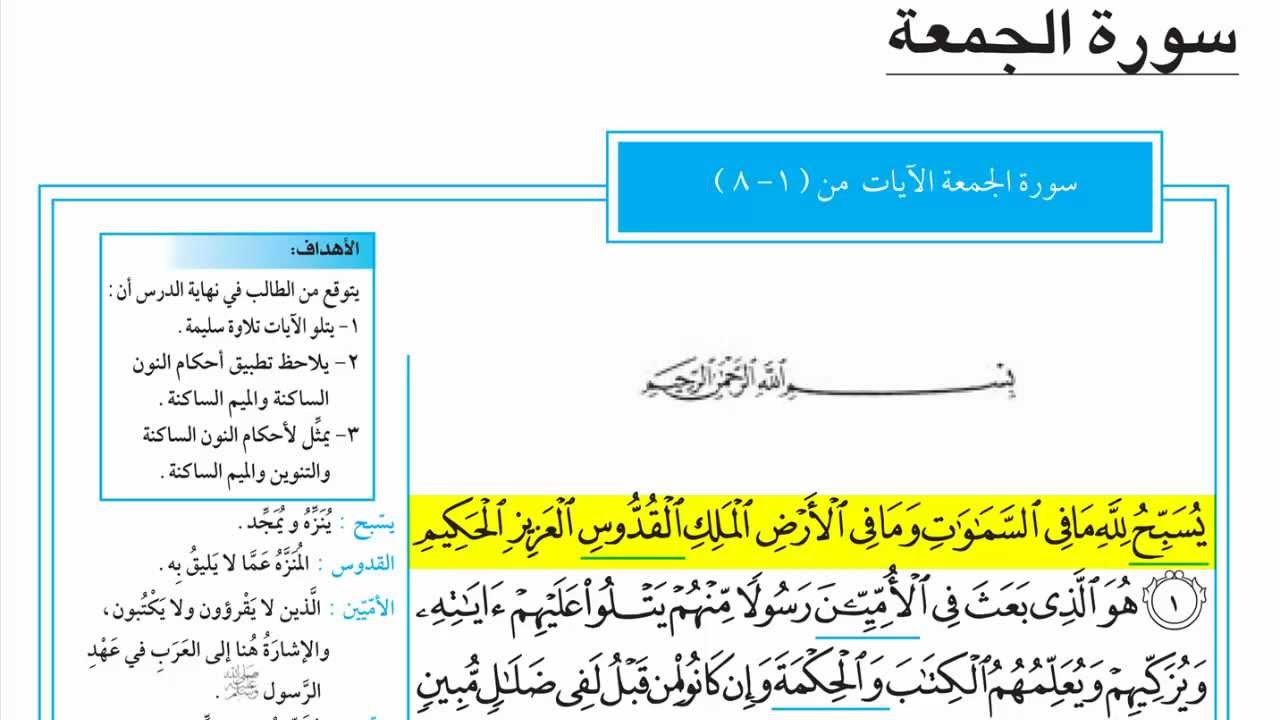 سورة الجمعة
سورة الجمعة الآيات من (١ - ٨)
الأهداف:
يتوقع من الطالب في نهاية الدرس أن:
١- يتلو الآيات تلاوة سليمة.
٢- يلاحظ تطبيق أحكام النون
الساكنة والميم الساكنة.
٣- يمثِّل لأحكام النون الساكنة
والتنوين والميم الساكنة.
بِسْمِ اللَّهِ الرَّحْمَٰنِ الرَّحِيمِ
يُسَبِّحُ لِلَّهِ مَا فِي ٱلسَّمَٰوَٰتِ وَمَا فِي ٱلْأَرْضِ ٱلْمَلِكِ ٱلْقُدُّوسِ ٱلْعَزِيزِ ٱلْحَكِيمِ
١ هُوَ ٱلَّذِي بَعَثَ فِي ٱلْأُمِّيِّـۧنَ رَسُولًا مِّنْهُمْ يَتْلُوا۟ عَلَيْهِمْ ءَايَٰتِهِۦ
وَيُزَكِّيهِمْ وَيُعَلِّمُهُمُ ٱلْكِتَٰبَ وَٱلْحِكْمَةَ وَإِن كَانُوا۟ مِن قَبْلُ لَفِي ضَلَٰلٍ مُّبِينٍ
يسّبح : يُنَزِّهُ و يُمَجِّد.
القدوس : المُنَزَّهُ عَمَّا لا يَليقُ بِه.
الأمّيّين : الَّذين لا يَقْرؤون ولا يَكْتُبون،
والإشارَةُ هُنا إلى العَرَبِ في عَهْدِ
الرَّسول ﷺ.